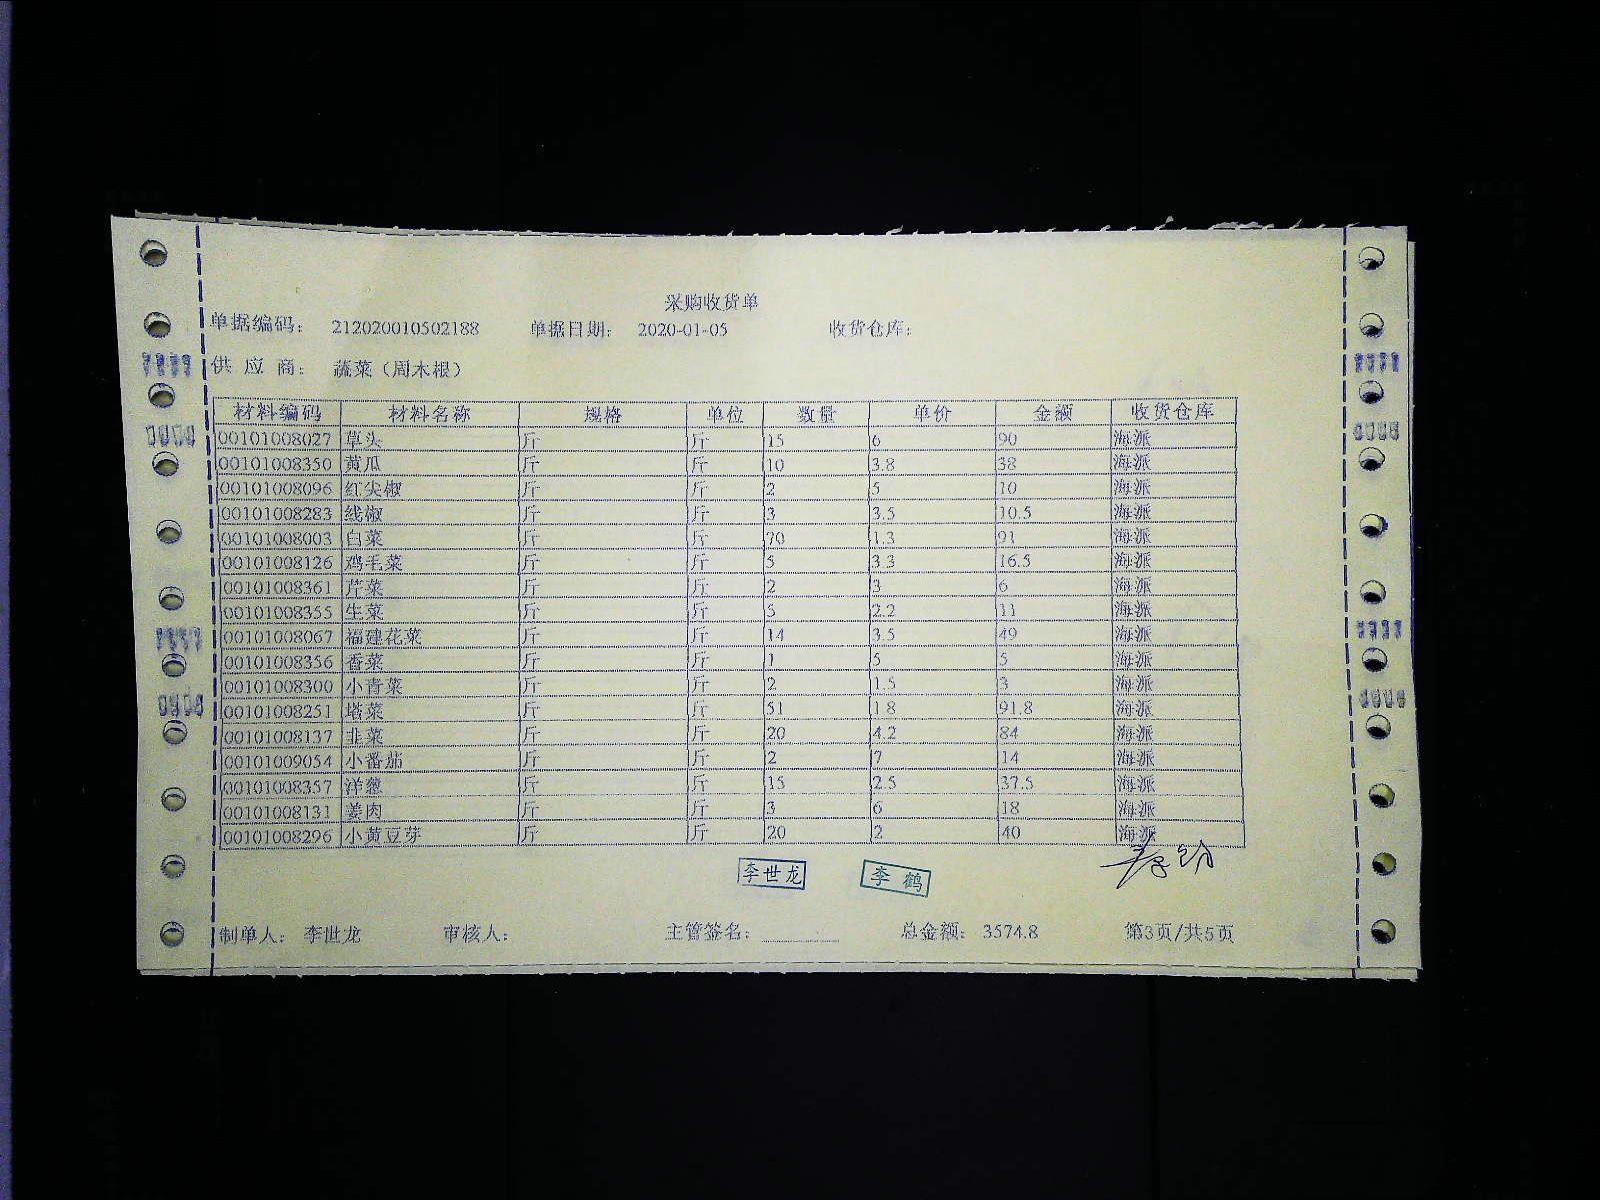 采购收货单
单据编码： 212020010502188 单据日期： 2020-01-05 收货仓库：
供 应 商： 蔬菜（周木根）
材料编码 材料名称 规格 单位 数量 单价 金额 收货仓库
00101008027 草头 斤 斤 15 6 90 海派
00101008350 黄瓜 斤 斤 10 3.8 38 海派
00101008096 红尖椒 斤 斤 2 5 10 海派
00101008283 线椒 斤 斤 3 3.5 10.5 海派
00101008003 白菜 斤 斤 70 1.3 91 海派
00101008126 鸡毛菜 斤 斤 5 3.3 16.5 海派
00101008361 芹菜 斤 斤 2 3 6 海派
00101008355 生菜 斤 斤 5 2.2 11 海派
00101008067 福建花菜 斤 斤 14 3.5 49 海派
00101008356 香菜 斤 斤 1 5 5 海派
00101008300 小青菜 斤 斤 2 1.5 3 海派
00101008251 塔菜 斤 斤 51 1.8 91.8 海派
00101008137 韭菜 斤 斤 20 4.2 84 海派
00101009054 小番茄 斤 斤 2 7 14 海派
00101008357 洋葱 斤 斤 15 2.5 37.5 海派
00101008131 姜肉 斤 斤 3 6 18 海派
00101008296 小黄豆芽 斤 斤 20 2 40 海派
李世龙 李鹤
制单人： 李世龙 审核人： 主管签名： 总金额： 3574.8 第3页/共5页